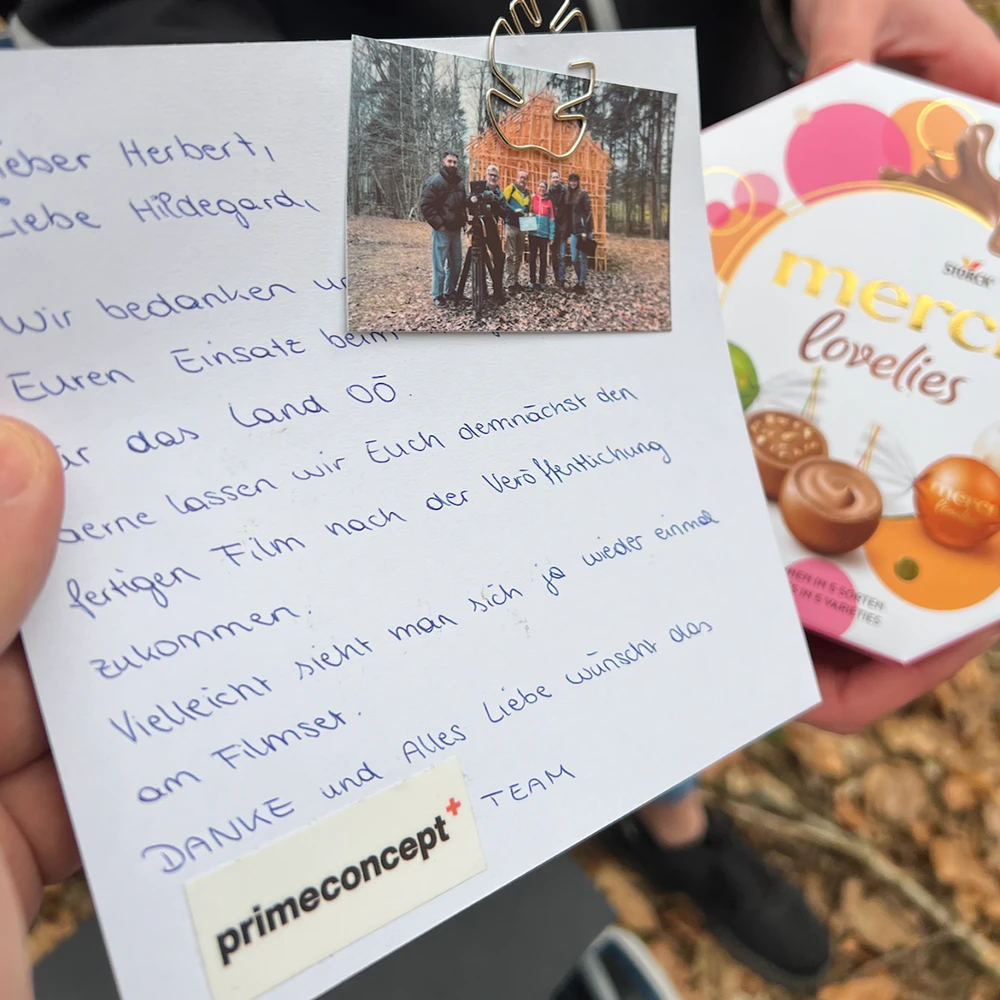 ieber Herbert,
Liebe Hildegard,
Wir bedanken un
Euren Einsatz beim
ür das Land OÖ.
erne lassen wir Euch demnächst den
fertigen Film nach der Veröffentlichung
zukommen.
Vielleicht sieht man sich ja wieder einmal
am Filmset.
DANKE und Alles Liebe wünscht das
primeconcept+ TEAM
STORCK
merci
lovelies
merci
EN IN 6 SORTEN
S IN 6 VARIETIES